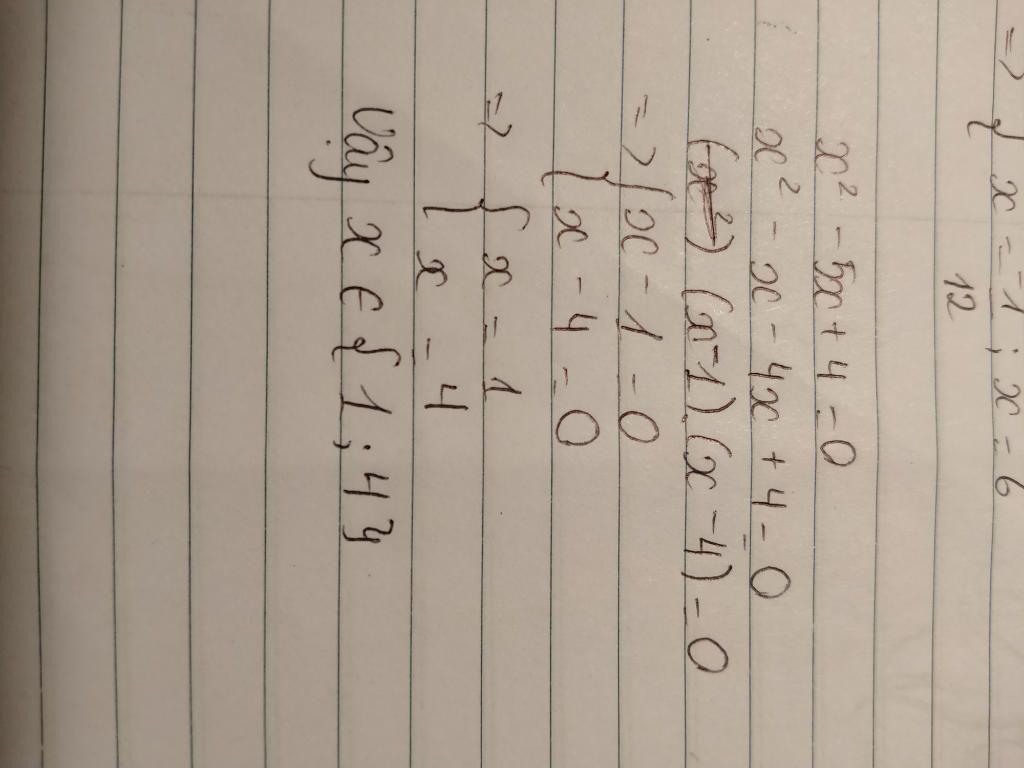 => { x = -1 ; x = 6
12
x² - 5x + 4 = 0
x² - x - 4x + 4 = 0
(x - 1).(x - 4) = 0
=> { x - 1 = 0
x - 4 = 0
=> { x = 1
x = 4
Vậy x ∈ { 1 ; 4 }